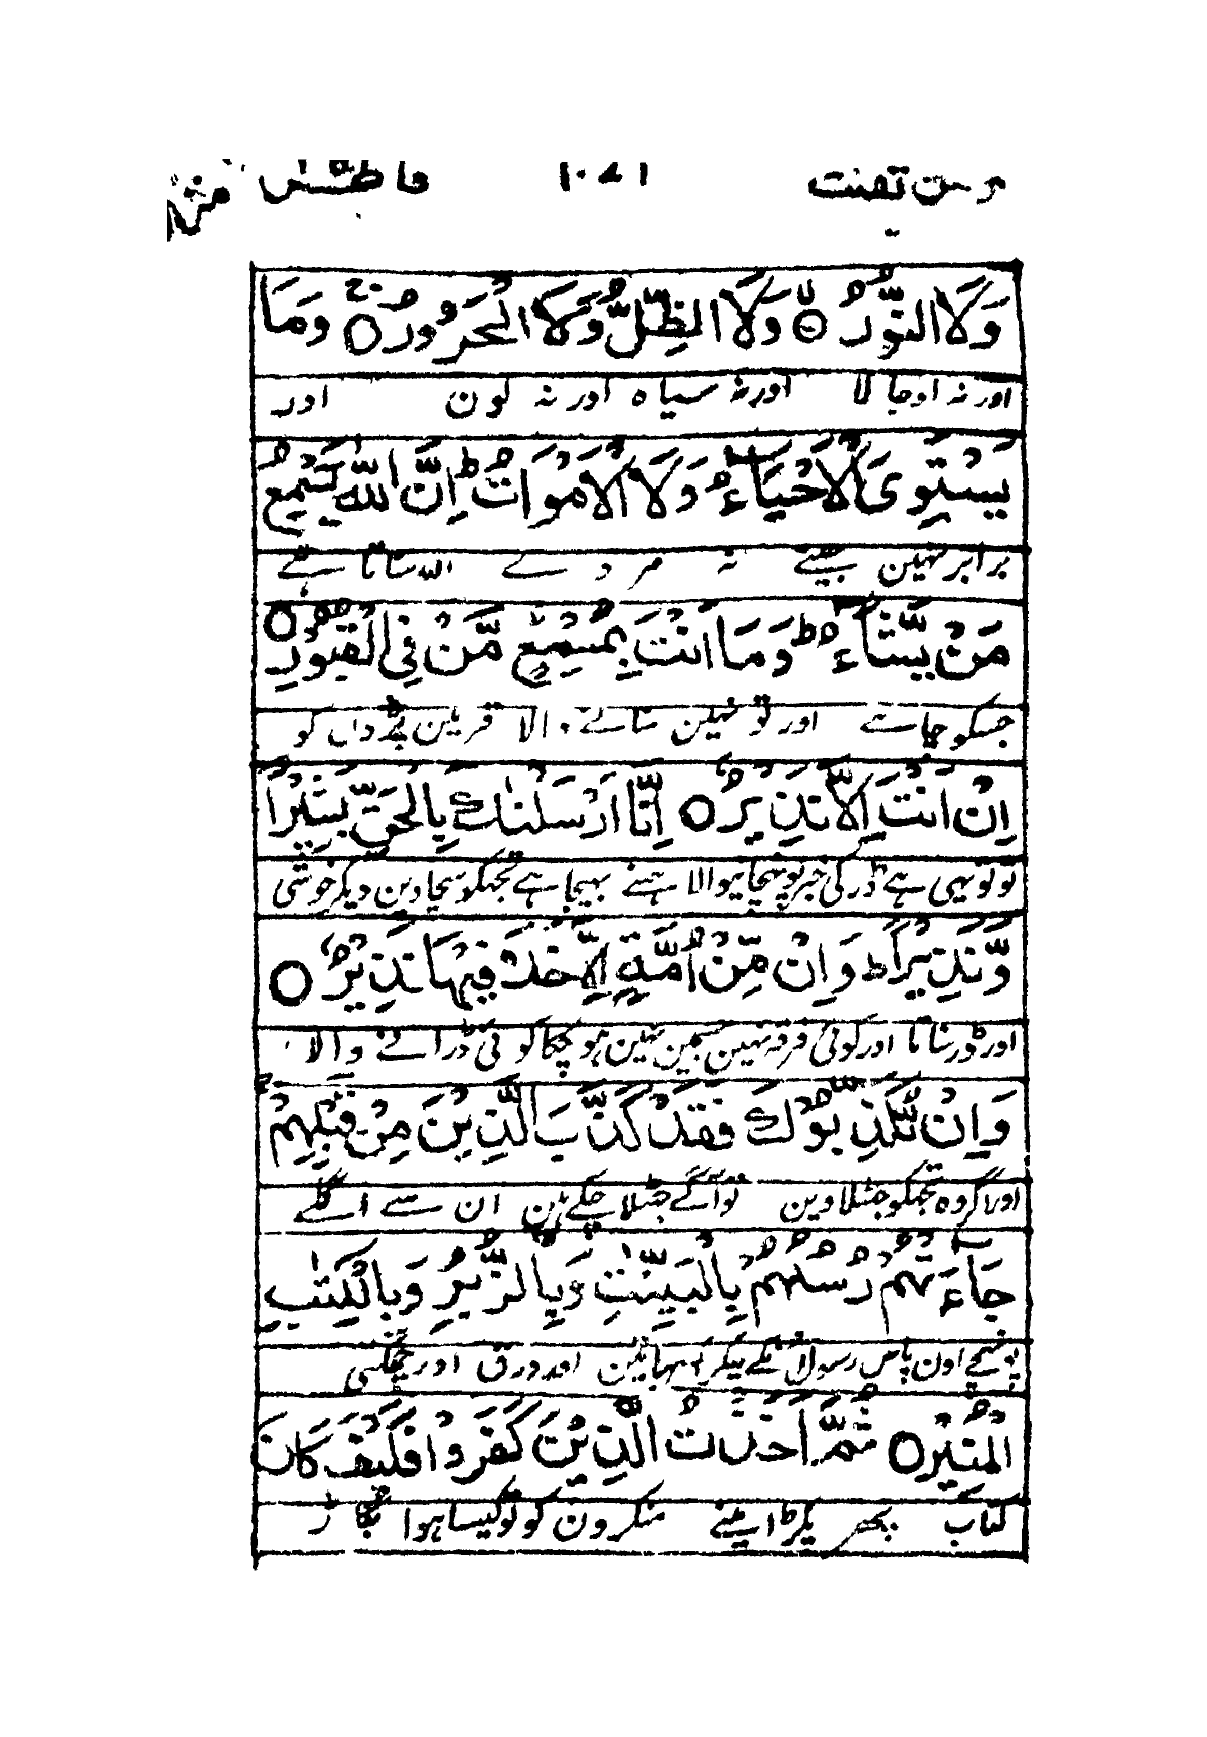 ومن یقنت ۱۰۸۱ فاطر
وَلَا النُّوْرُ ۙ وَلَا الظِّلُّ وَلَا الْحَرُوْرُ ۚ وَمَا
اور نہ اوجالا اور نہ سیاہ اور نہ لون اور
يَسْتَوِى الْاَحْيَآءُ وَلَا الْاَمْوَاتُ ؕ اِنَّ اللّٰهَ يُسْمِعُ
برابر نہین جیتے نہ مردے اللہ سناتا ہے
مَنْ يَّشَآءُ ؕ وَمَا اَنْتَ بِمُسْمِعٍ مَّنْ فِى الْقُبُوْرِ
جسکو چاہے اور تو نہین سنانے والا قبر مین پڑے
اِنْ اَنْتَ اِلَّا نَذِيْرٌ اِنَّا اَرْسَلْنٰكَ بِالْحَقِّ بَشِيْرًا
تو تو یہی ہے ڈر کی خبر پونہچانیوالا ہمنے بہیجا ہے تجہکو سچا دین دیکر خوشی
وَّنَذِيْرًا ؕ وَاِنْ مِّنْ اُمَّةٍ اِلَّا خَلَا فِيْهَا نَذِيْرٌ
اور ڈر سناتا اور کوئی فرقہ نہین جسمین نہین ہو چکا کوئی ڈرانے والا
وَاِنْ يُّكَذِّبُوْكَ فَقَدْ كَذَّبَ الَّذِيْنَ مِنْ قَبْلِهِمْ
اور اگر وہ تجہکو جھٹلاوین تو آگے جھٹلا چکے ہین ان سے اگلے
جَآءَتْهُمْ رُسُلُهُمْ بِالْبَيِّنٰتِ وَبِالزُّبُرِ وَبِالْكِتٰبِ
پونہچے اون پاس رسول انکے لیکر اور ورق اور چمکتی
الْمُنِيْرِ ثُمَّ اَخَذْتُ الَّذِيْنَ كَفَرُوْا فَكَيْفَ كَانَ
کتاب پھر پکڑا مینے منکرون کو تو کیسا ہوا بگاڑ